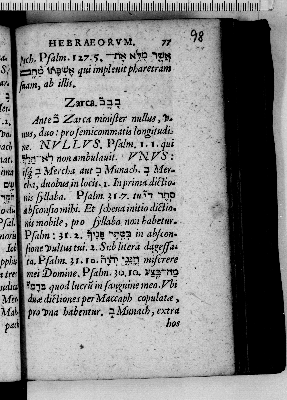 HEBRAEORVM. 77
98
Psalm. 127.5. אֲשֶׁר מִלֵּא אֶת־
qui implevit pharetram
suam, ab illis.
Zarca.
Ante Zarca minister nullus, v-
nus, duo: pro semicommatis longitudi
ne. NVLLVS. Psalm. 1. 1. qui
לֹא הָלַךְ non ambulauit. VNVS:
Mercha aut Munach. Mer-
cha, duobus in locis. 1. In prima dictio-
nis syllaba. Psalm. 31.7.
absconsi mihi. Et schena initio dictio-
nis mobile, pro syllaba non habetur.
Psalm: 31. 2. in abscon-
sione vultus tui. 2. Sub litera dagessa-
ta. Psalm. 31.10. miserere
mei Domine. Psalm. 30.10. מַה־בֶּצַע
quod lucrum in sanguine meo. Vbi
duæ dictiones per Maccaph copulatæ,
pro vna habentur. Munach, extra
hos